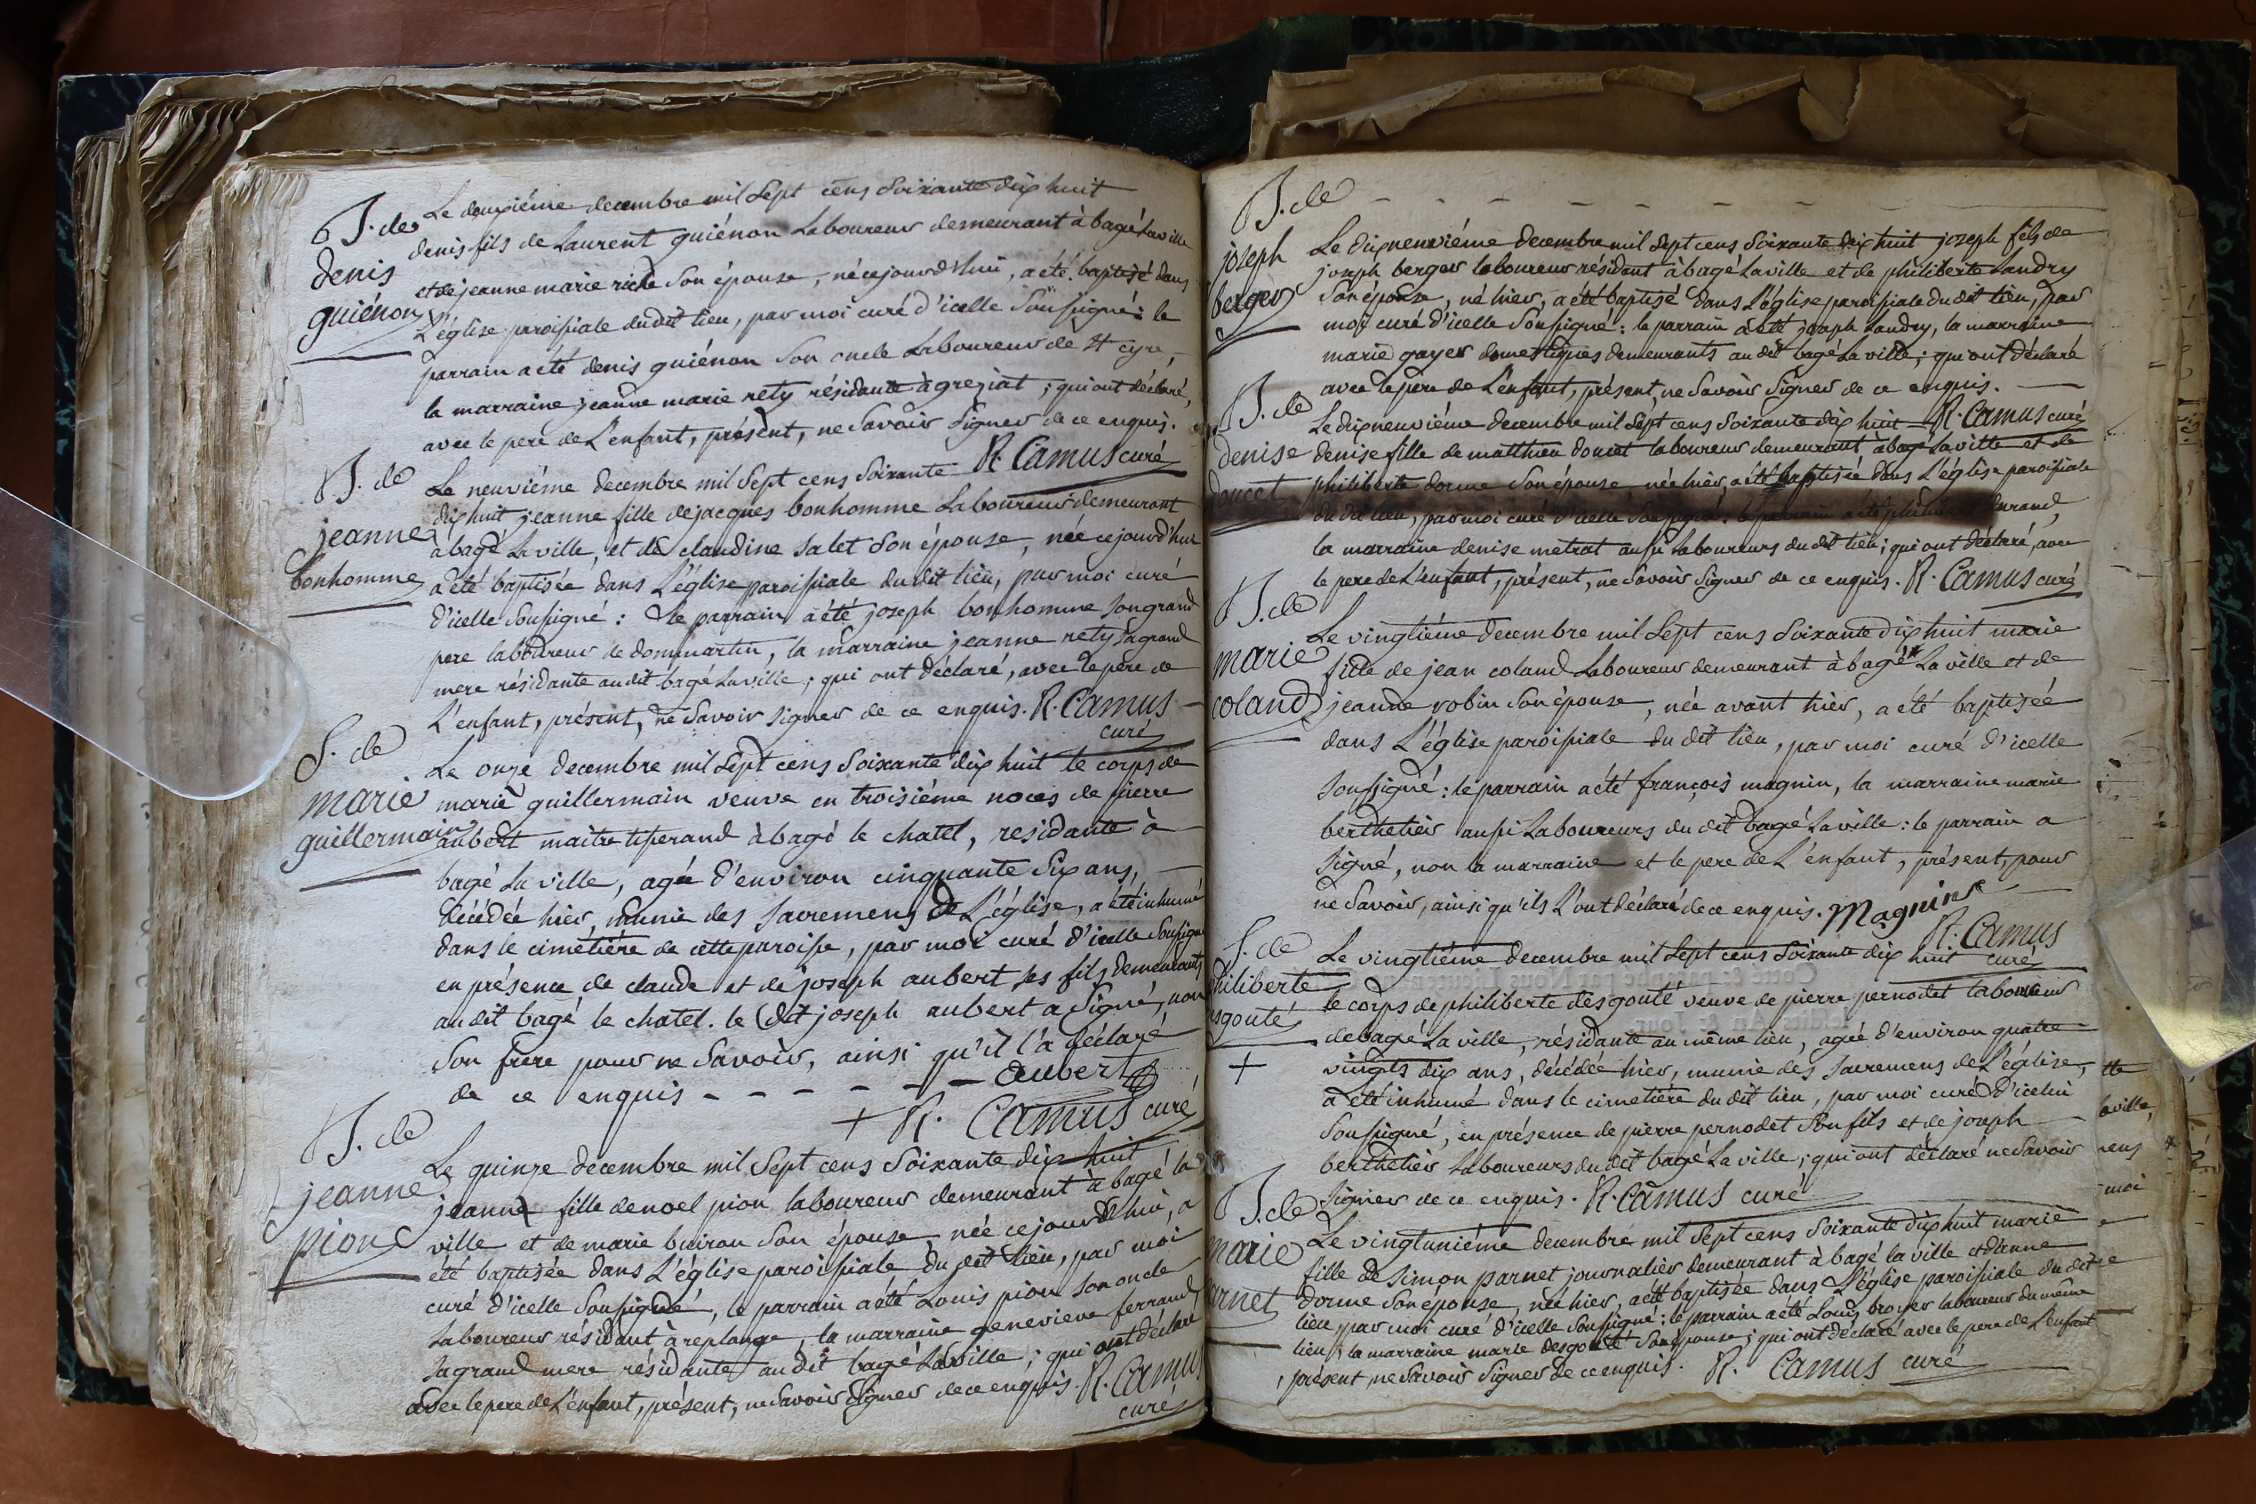 B. de
denis
guiénon
Le deuxiéme decembre mil Sept cens Soixante dix huit
denis fils de Laurent guiénon Laboureur demeurant à bagé La ville
et de jeanne marie riche Son épouse, né ce jourd'hui, a été baptisé dans
L'église paroissiale du dit lieu, par moi curé d'icelle Soussigné: le
parrain a été denis guiénon Son oncle Laboureur de St cyre,
la marraine jeanne marie rety résidante à greziat; qui ont déclaré,
avec le pere de L'enfant, présent, ne Savoir Signer de ce enquis.
R. Camus curé
B. de
jeanne
bonhomme
Le neuviéme decembre mil Sept cens Soixante
dix huit jeanne fille de jacques bonhomme Laboureur demeurant
à bagé La ville, et de claudine Salet Son épouse, née ce jourd'hui
a été baptisée dans L'église paroissiale du dit lieu, par moi curé
d'icelle Soussigné: Le parrain a été joseph bonhomme Son grand
pere laboureur de dommartin, la marraine jeanne rety Sa grand
mere résidante au dit bagé La ville; qui ont déclaré, avec le pere de
L'enfant, présent, ne Savoir Signer de ce enquis. R. Camus
curé
S. de
marie
guillermain
Le onze decembre mil Sept cens Soixante dix huit le corps de
marie guillermain veuve en troisiéme noces de pierre
aubert maitre tisserand à bagé le chatel, residante à
bagé La ville, agée d'environ cinquante Six ans,
décédée hier, munie des Sacremens de L'église, a été inhumé
dans le cimetiére de cette paroisse, par moi curé d'icelle Soussigné
en présence de claude et de joseph aubert Ses fils demeurants
au dit bagé le chatel. le dit joseph aubert a Signé, non
Son frere pour ne Savoir, ainsi qu'il l'a déclaré
de ce enquis - - - - - aubert
+ R. Camus curé
B. de
jeanne
pion
Le quinze decembre mil Sept cens Soixante dix huit
jeanne fille de noel pion laboureur demeurant à bagé la
ville et de marie buiron Son épouse née ce jourd'hui, a
été baptisée dans L'église paroissiale du dit lieu, par moi
curé d'icelle Soussigné, le parrain a été Louis pion Son oncle
Laboureur résidant à replonge, la marraine genevieve ferrand
Sa grand mere résidante au dit bagé La ville; qui ont déclaré
avec le pere de L'enfant, présent, ne Savoir Signer de ce enquis. R. Camus
curé
B. de
joseph
berger
Le dix neuviéme decembre mil Sept cens Soixante dix huit joseph fils de
joseph berger laboureur résidant à bagé La ville et de philiberte Landry
Son épouse, né hier, a été baptisé dans L'église paroissiale du dit lieu, par
moi curé d'icelle Soussigné: le parrain a été joseph Landry, la marraine
marie gayer domestiques demeurants au dit bagé La ville; qui ont déclaré
avec le pere de L'enfant, présent, ne Savoir Signer de ce enquis.
R. Camus curé
B. de
denise
doucet
Le dix neuviéme decembre mil Sept cens Soixante dix huit
denise fille de matthieu doucet laboureur demeurant à bagé La ville et de
philiberte dorme Son épouse née hier, a été baptisée dans L'église paroissiale
du dit lieu, par moi curé d'icelle Soussigné: le parrain a été durand,
la marraine denise metrat aussi Laboureurs du dit lieu; qui ont déclaré, avec
le pere de L'enfant, présent, ne Savoir Signer de ce enquis. R. Camus curé
B. de
marie
coland
Le vingtiéme decembre mil Sept cens Soixante dix huit marie
fille de jean coland Laboureur demeurant à bagé La ville et de
jeanne robin Son épouse, née avant hier, a été baptisée
dans L'église paroissiale du dit lieu, par moi curé d'icelle
Soussigné: le parrain a été françois magnin, la marraine marie
berthelier aussi Laboureurs du dit bagé La ville: le parrain a
Signé, non la marraine et le pere de L'enfant, présent, pour
ne Savoir, ainsi qu'ils L'ont déclaré de ce enquis. Magnin
R. Camus
curé
S. de
philiberte
sgouté
+
Le vingtiéme decembre mil Sept cens Soixante dix huit
le corps de philiberte desgouté veuve de pierre pernodet laboureur
de bagé La ville, résidante au même lieu, agée d'environ quatre
vingts dix ans, décédée hier, munie des Sacremens de L'église,
a été inhumé dans le cimetiére du dit lieu, par moi curé d'icelui
Soussigné, en présence de pierre pernodet Son fils et de joseph
berthelier Laboureurs du dit bagé La ville; qui ont déclaré ne Savoir
Signer de ce enquis. R. Camus curé
B. de
marie
arnet
Le vingtuniéme decembre mil Sept cens Soixante dix huit marie
fille de Simon parnet journalier demeurant à bagé la ville et d'anne
dorme Son épouse, née hier, a été baptisée dans L'église paroissiale du dit
lieu, par moi curé d'icelle Soussigné: le parrain a été Louis broyer laboureur du même
lieu, la marraine marie desgouté Son épouse; qui ont déclaré avec le pere de L'enfant
, présent, ne Savoir Signer de ce enquis. R. Camus curé
tte
la ville,
mens
moi